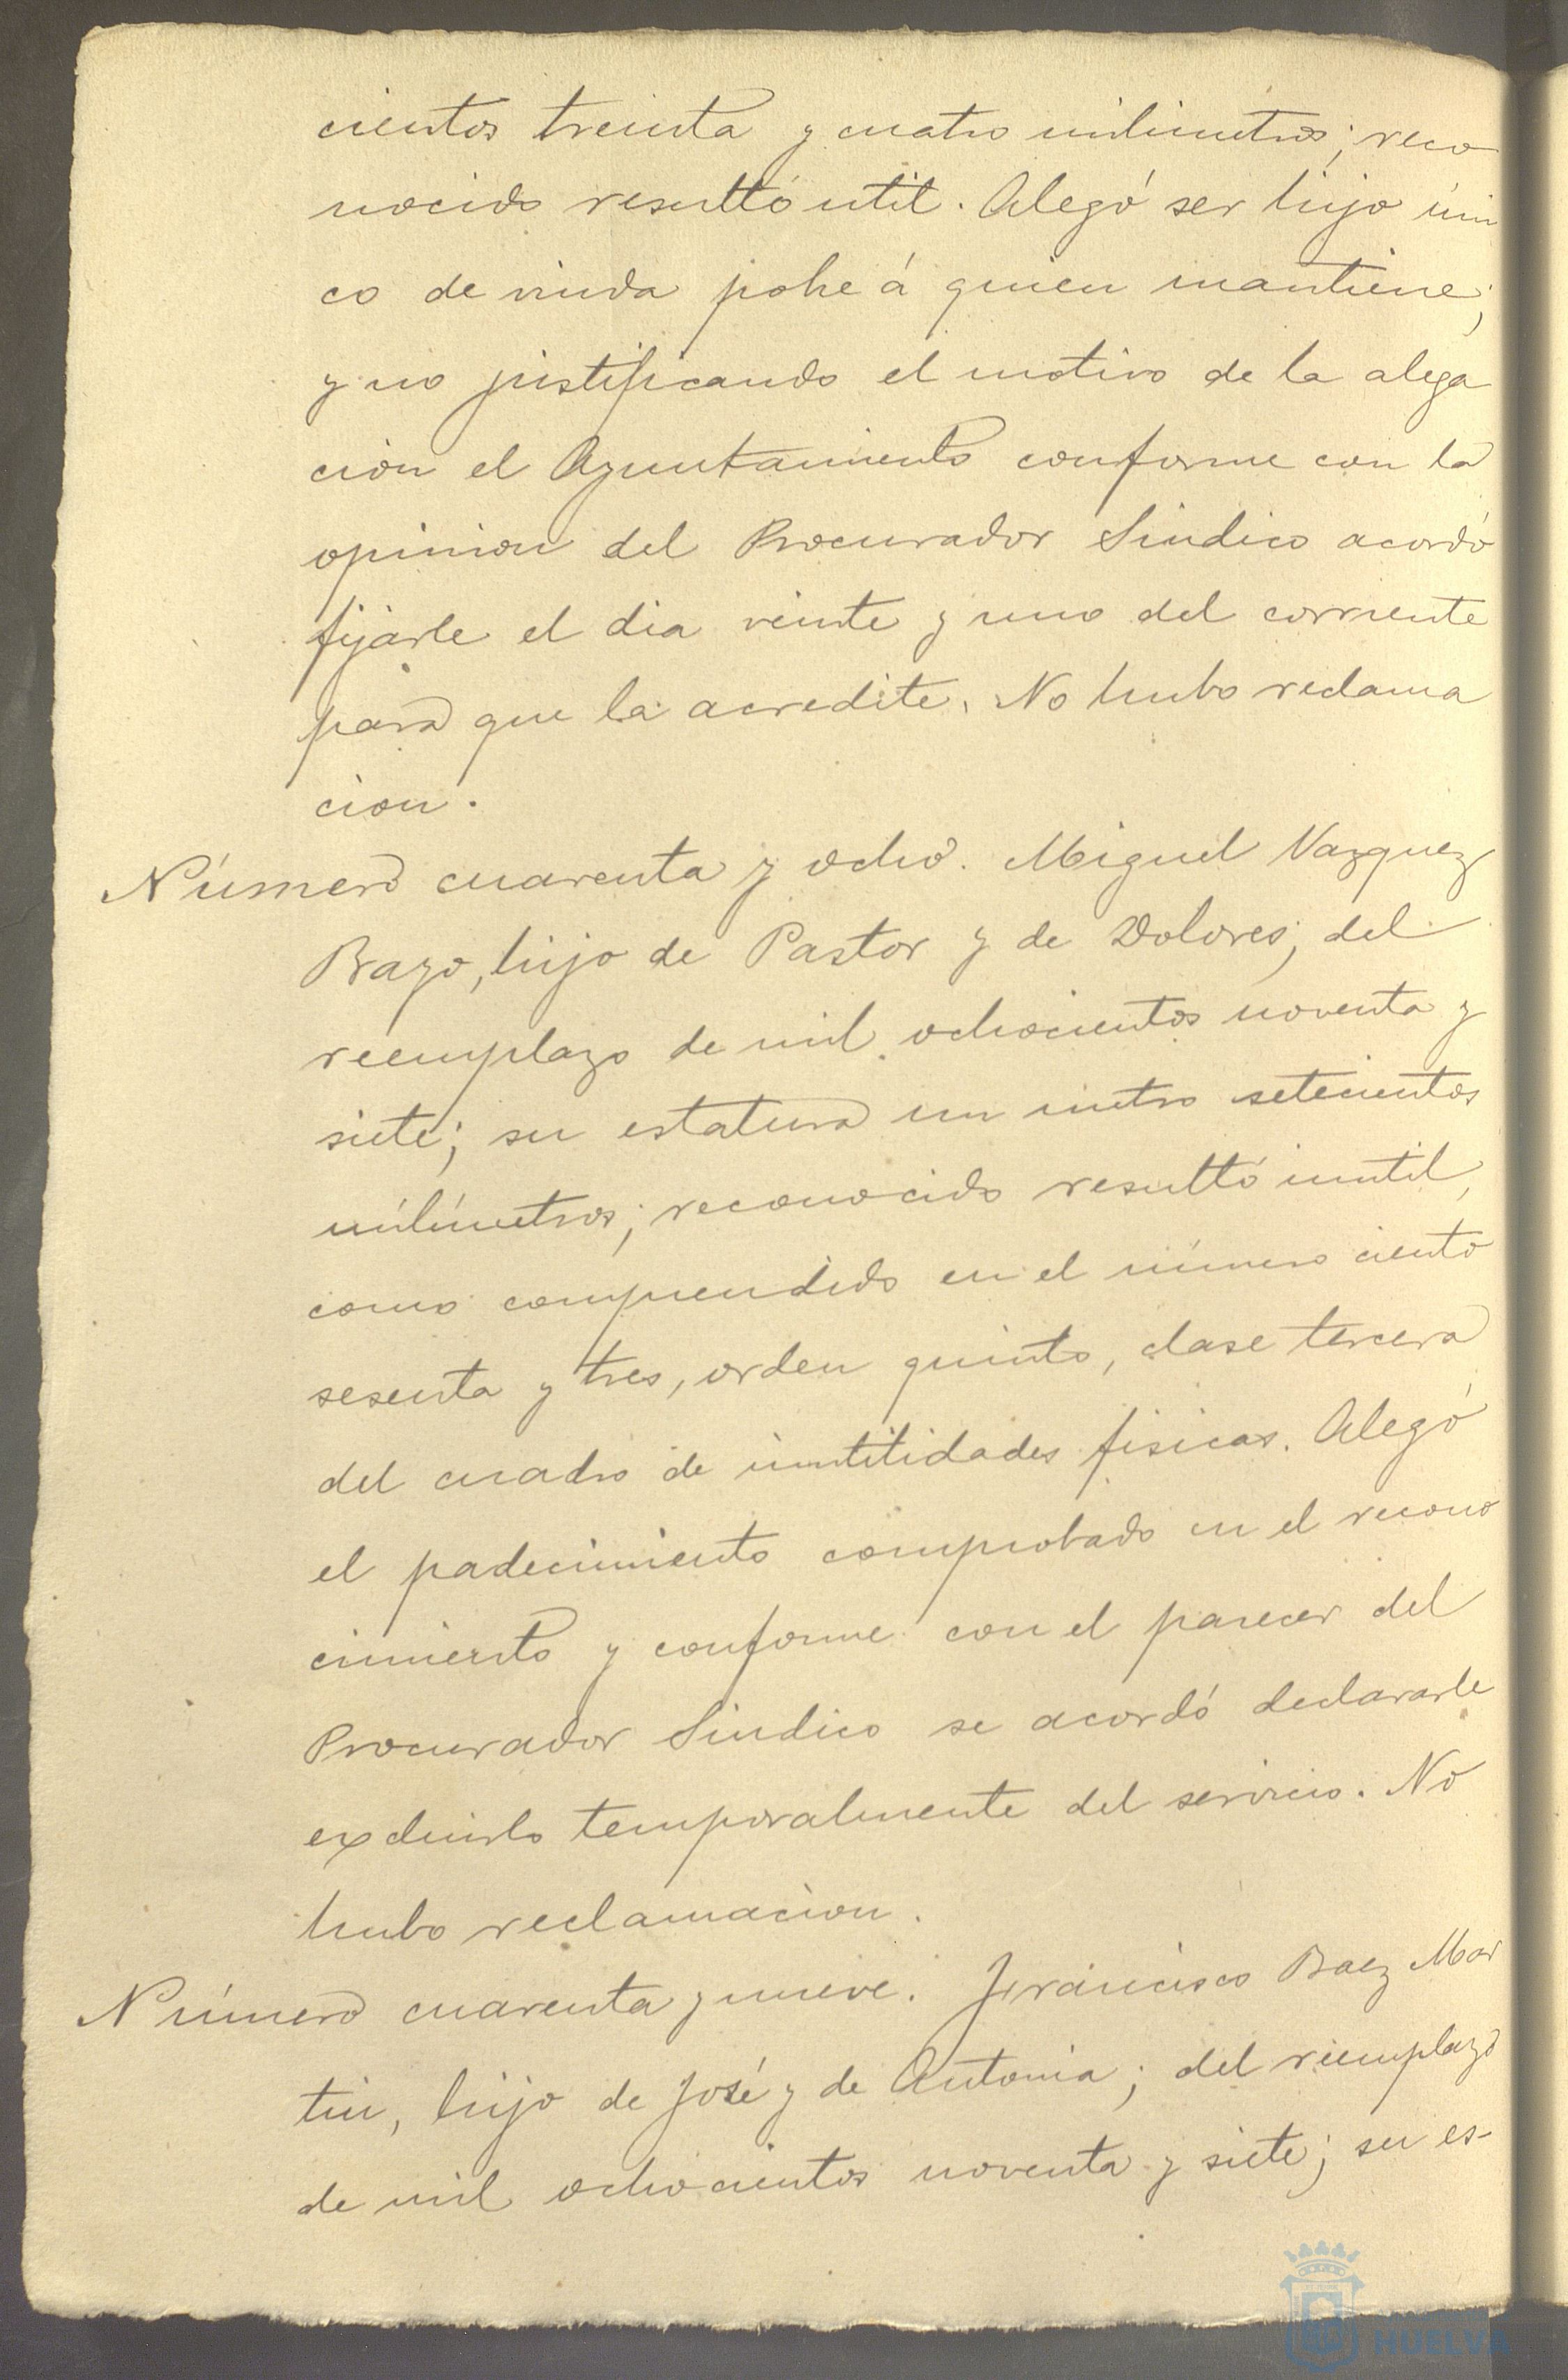 cientos treinta y cuatro milimetros; reco
nocido resultó util. Alegó ser hijo úni
co de viuda pobre á quien mantiene;
y no justificando el motivo de la alega
cion el Ayuntamiento conforme con la
opinion del Procurador Sindico acordó
fijarle el dia veinte y uno del corriente
para que la acredite. No hubo reclama
cion.
Número cuarenta y ocho. Miguel Vazquez
Bazo, hijo de Pastor y de Dolores; del
reemplazo de mil ochocientos noventa y
siete; su estatura un metro setecientos
milímetros; reconocido resultó inutil,
como comprendido en el número ciento
sesenta y tres, orden quinto, clase tercera
del cuadro de inutilidades fisicas. Alegó
el padecimiento comprobado en el recono
cimiento y conforme con el parecer del
Procurador Sindico se acordó declararle
excluirlo temporalmente del servicio. No
hubo reclamacion.
Número cuarenta y nueve. Francisco Baez Mar
tin, hijo de José y de Antonia; del reemplazo
de mil ochocientos noventa y siete; su es-
HUELVA